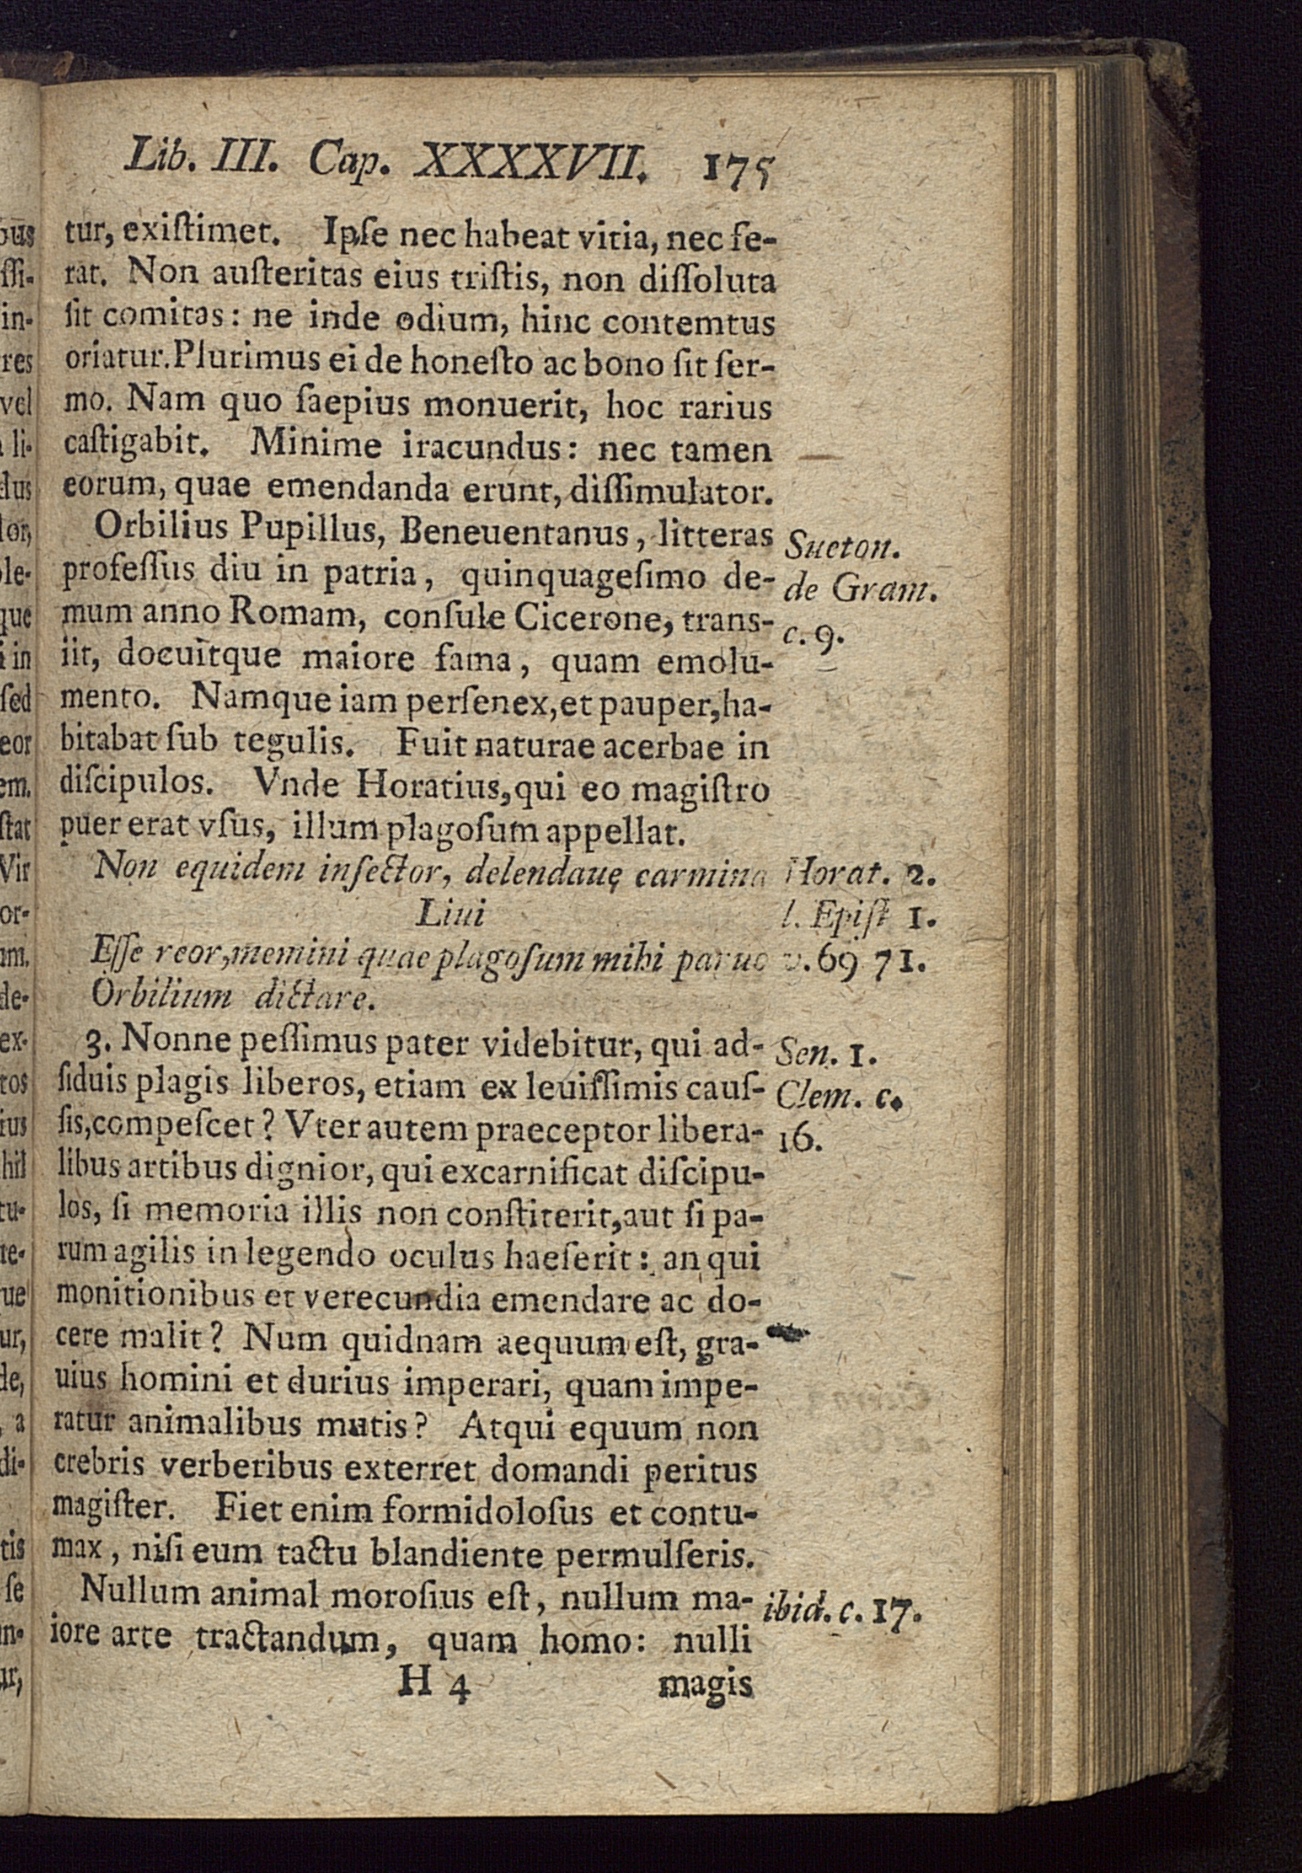 Lib. III. Cap. XXXXVII. 175
tur, exiſtimet. Ipſe nec habeat vitia, nec fe-
rat. Non auſteritas eius triſtis, non diſſoluta
ſit comitas: ne inde odium, hinc contemtus
oriatur. Plurimus ei de honeſto ac bono ſit ſer-
mo. Nam quo ſaepius monuerit, hoc rarius
caſtigabit. Minime iracundus: nec tamen
eorum, quae emendanda erunt, diſſimulator.
Orbilius Pupillus, Beneuentanus, litteras Sueton.
profeſſus diu in patria, quinquageſimo de- de Gram.
mum anno Romam, conſule Cicerone, trans- c. 9.
iit, docuitque maiore fama, quam emolu-
mento. Namque iam perſenex, et pauper, ha-
bitabat ſub tegulis. Fuit naturae acerbae in
diſcipulos. Vnde Horatius, qui eo magiſtro
puer erat vſus, illum plagoſum appellat.
Non equidem inſector, delendaue carmina Horat. 2.
Liui l. Epiſt 1.
Eſſe reor, memini quae plagoſum mihi paruo v. 69 71.
Orbilium dictare.
3. Nonne peſſimus pater videbitur, qui ad- Sen. 1.
ſiduis plagis liberos, etiam ex leuiſſimis cauſ- Clem. c.
ſis, compeſcet? Vter autem praeceptor libera- 16.
libus artibus dignior, qui excarnificat diſcipu-
los, ſi memoria illis non conſtiterit, aut ſi pa-
rum agilis in legendo oculus haeſerit: an qui
monitionibus et verecundia emendare ac do-
cere malit? Num quidnam aequum eſt, gra-
uius homini et durius imperari, quam impe-
ratur animalibus mutis? Atqui equum non
crebris verberibus exterret domandi peritus
magiſter. Fiet enim formidoloſus et contu-
max, niſi eum tactu blandiente permulſeris.
Nullum animal moroſius eſt, nullum ma- ibid. c. 17.
iore arte tractandum, quam homo: nulli
H 4 magis